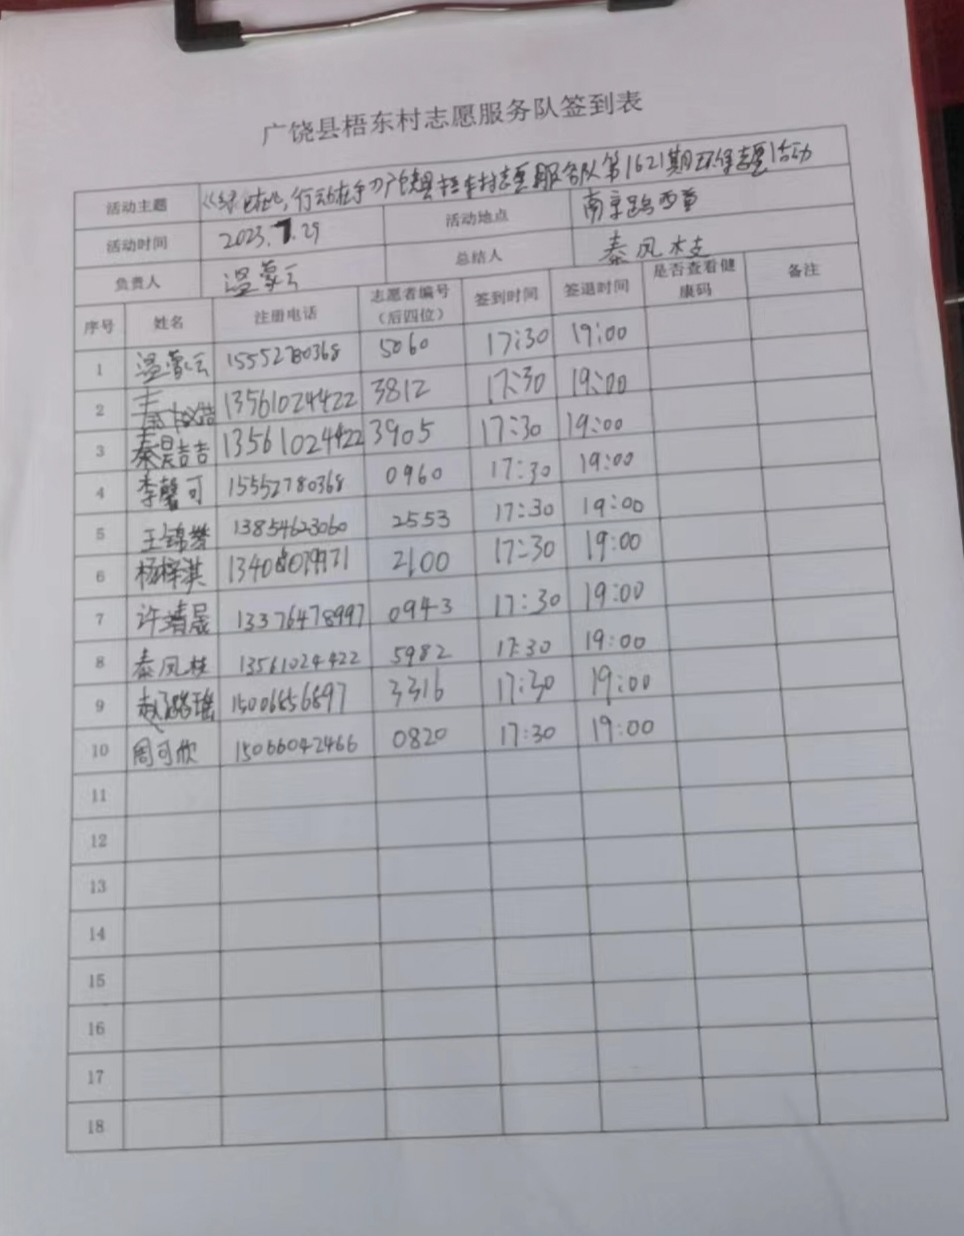 广饶县梧东村志愿服务队签到表
活动主题 《绿色在心,行动在手》广饶县梧东村志愿服务队第1621期环保志愿活动
活动时间 2023.7.29 活动地点 南京路西首
负责人 温蒙云 总结人 秦凤枝
序号 姓名 注册电话 志愿者编号(后四位) 签到时间 签退时间 是否查看健康码 备注
1 温蒙云 15552780368 5060 17:30 19:00
2 13561024422 3812 17:30 19:00
3 秦昊吉吉 13561024422 3905 17:30 19:00
4 李馨可 15552780368 0960 17:30 19:00
5 王锦 13854623060 2553 17:30 19:00
6 杨梓淇 2100 17:30 19:00
7 许靖晟 13376478997 0943 17:30 19:00
8 秦凤枝 13561024422 5982 17:30 19:00
9 赵璐瑶 15006856897 3316 17:30 19:00
10 周可欣 15066042466 0820 17:30 19:00
11
12
13
14
15
16
17
18